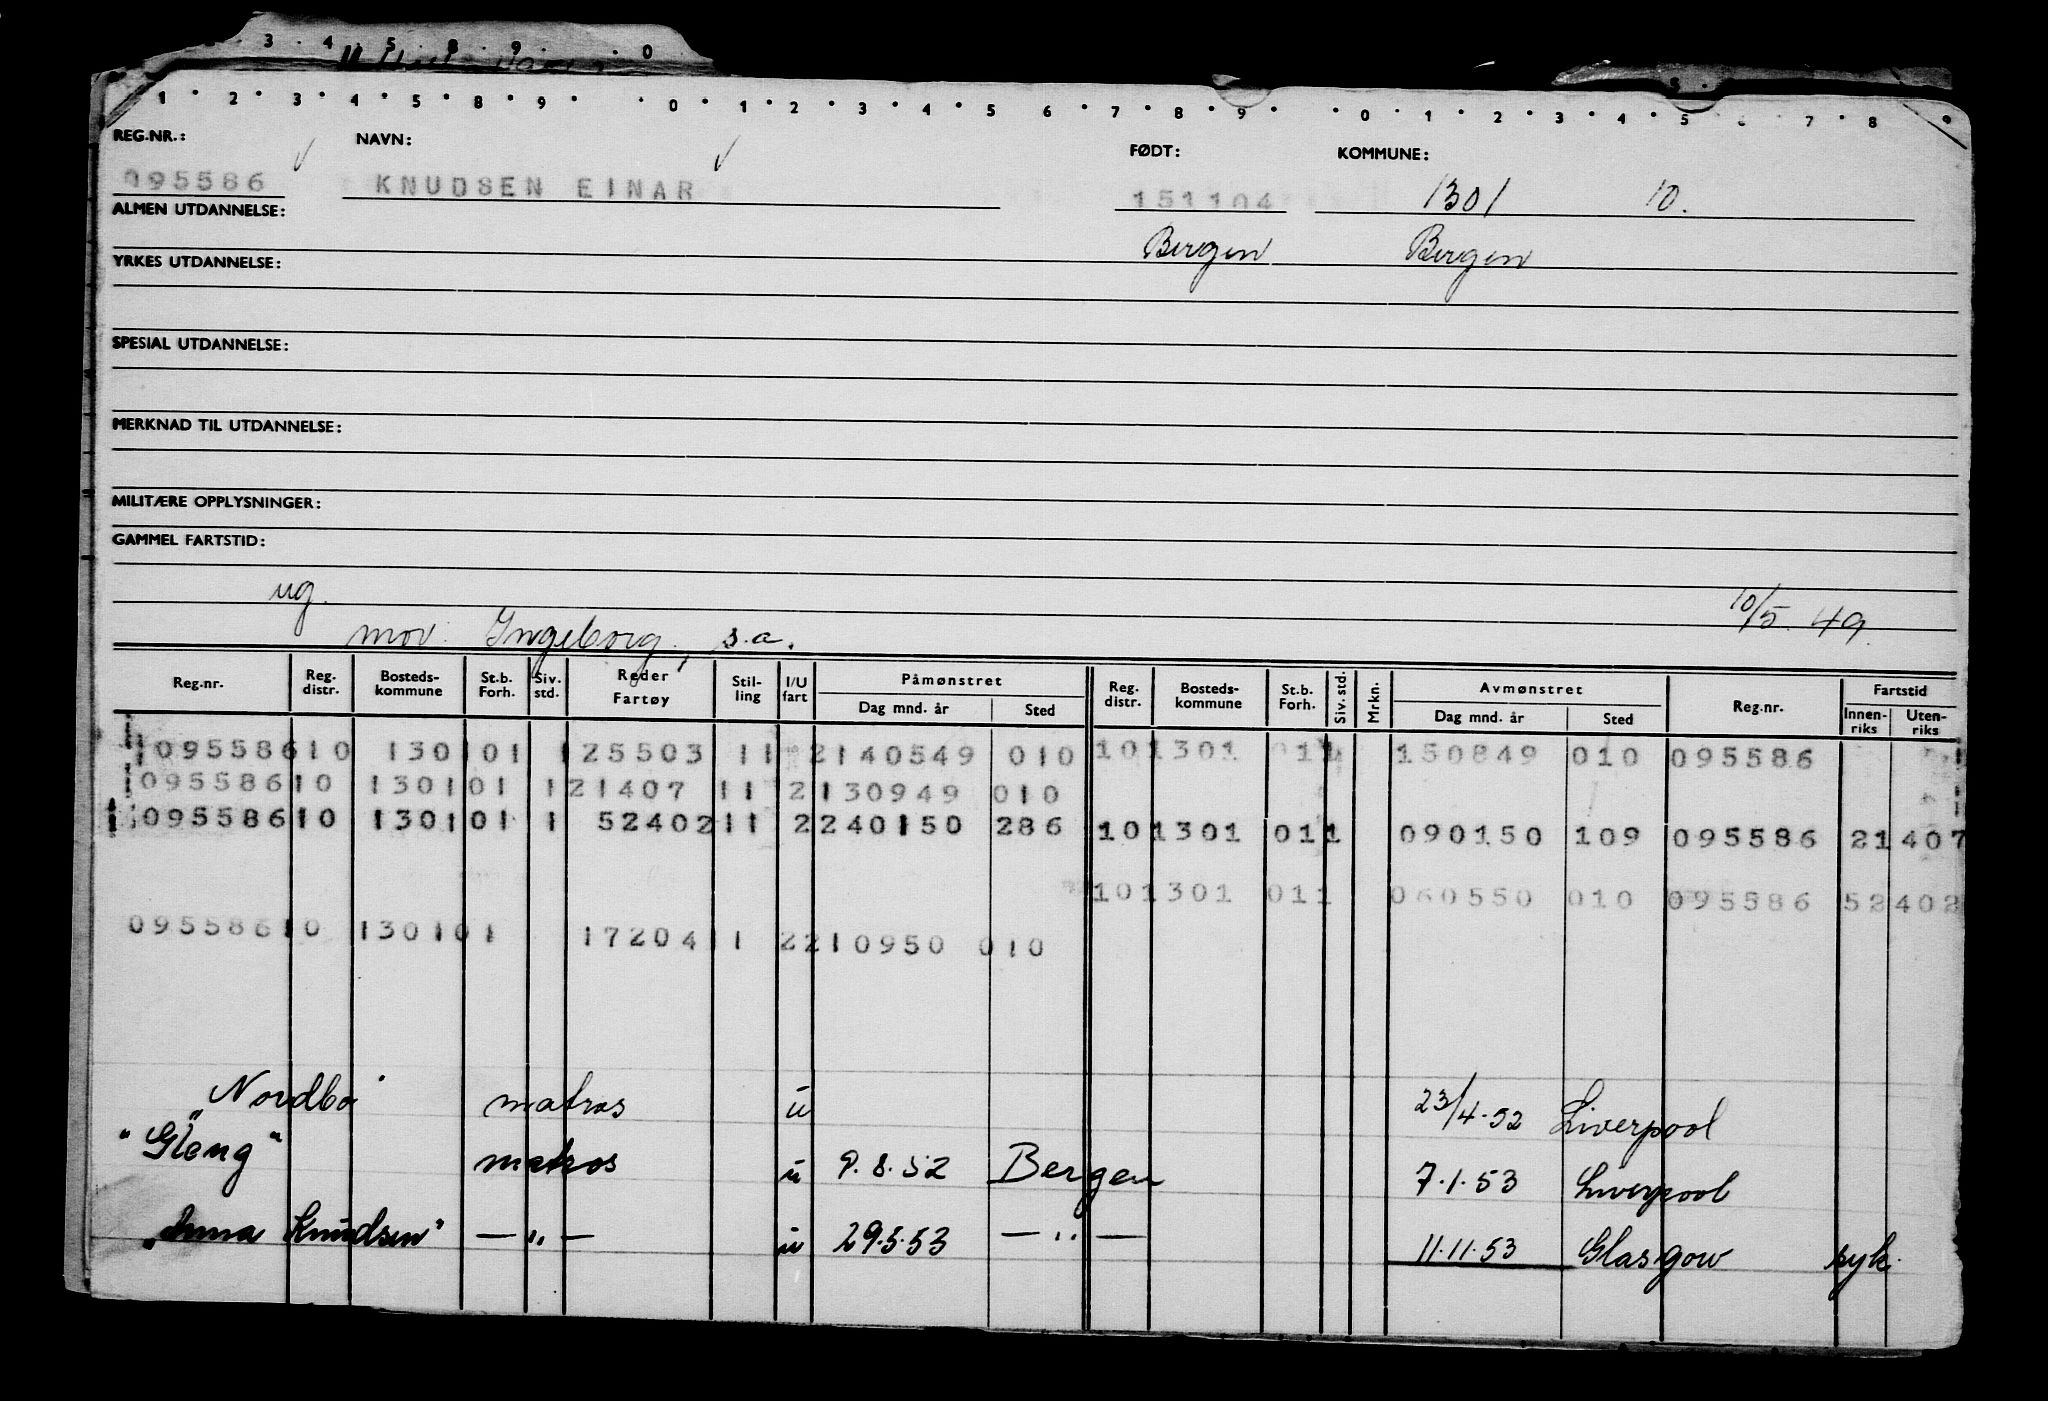 3 . 4 . 5 . 8 . 9 . . 0
1 . 2 . 3 . 4 . 5 . 8 . 9 . . 0 . 1 . 2 . 3 . 4 . 5 6 . 7 . 8 . 9 . . 0 . 1 . 2 . 3 . 4 . 5 7 . 8 9
REG.NR.: NAVN: FØDT: KOMMUNE:
095586 KNUDSEN EINAR 151104 1301 10.
ALMEN UTDANNELSE:
Bergen Bergen
YRKES UTDANNELSE:
SPESIAL UTDANNELSE:
MERKNAD TIL UTDANNELSE:
MILITÆRE OPPLYSNINGER:
GAMMEL FARTSTID:
ug. 10/5.49.
mor: Ingeborg, s.a.
Reg.nr. Reg. distr. Bosteds-kommune St.b. Forh. Siv. std. Reder Fartøy Stil-ling I/U fart Påmønstret Dag mnd. år Sted Reg. distr. Bosteds-kommune St.b. Forh. Siv.std. Mrkn. Avmønstret Dag mnd. år Sted Reg.nr. Fartstid Innen-riks Uten-riks
095586 10 1301 01 1 25503 11 2 140549 010 10 1301 01 1 150849 010 095586
095586 10 1301 01 1 21407 11 2 130949 010
095586 10 1301 01 1 52402 11 2 240150 286 10 1301 01 1 090150 109 095586 21407
10 1301 01 1 060550 010 095586 52402
095586 10 1301 01 17204 11 2 210950 010
"Nordbo" matros u 23/4-52 Liverpool
"Gleng" matros u 9.8.52 Bergen 7.1.53 Liverpool
"Anna Knudsen" — " — u 29.5.53 — " — 11.11.53 Glasgow syk.